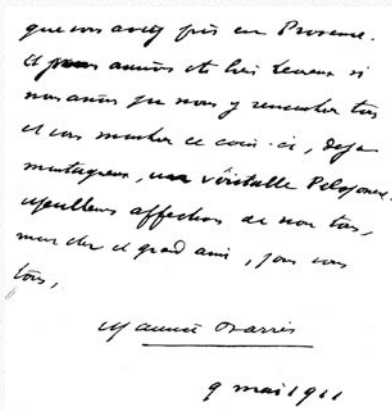 que vous avez pris en Provence.
et nous aurions été très heureux si
nous avions pu nous y rencontrer tous
et vous montrer ce coin-ci, déjà
montagneux, un véritable Péloponèse.
Meilleures affections de nous tous,
mon cher et grand ami, pour vous
tous,
Maurice Barrès
9 mai 1911